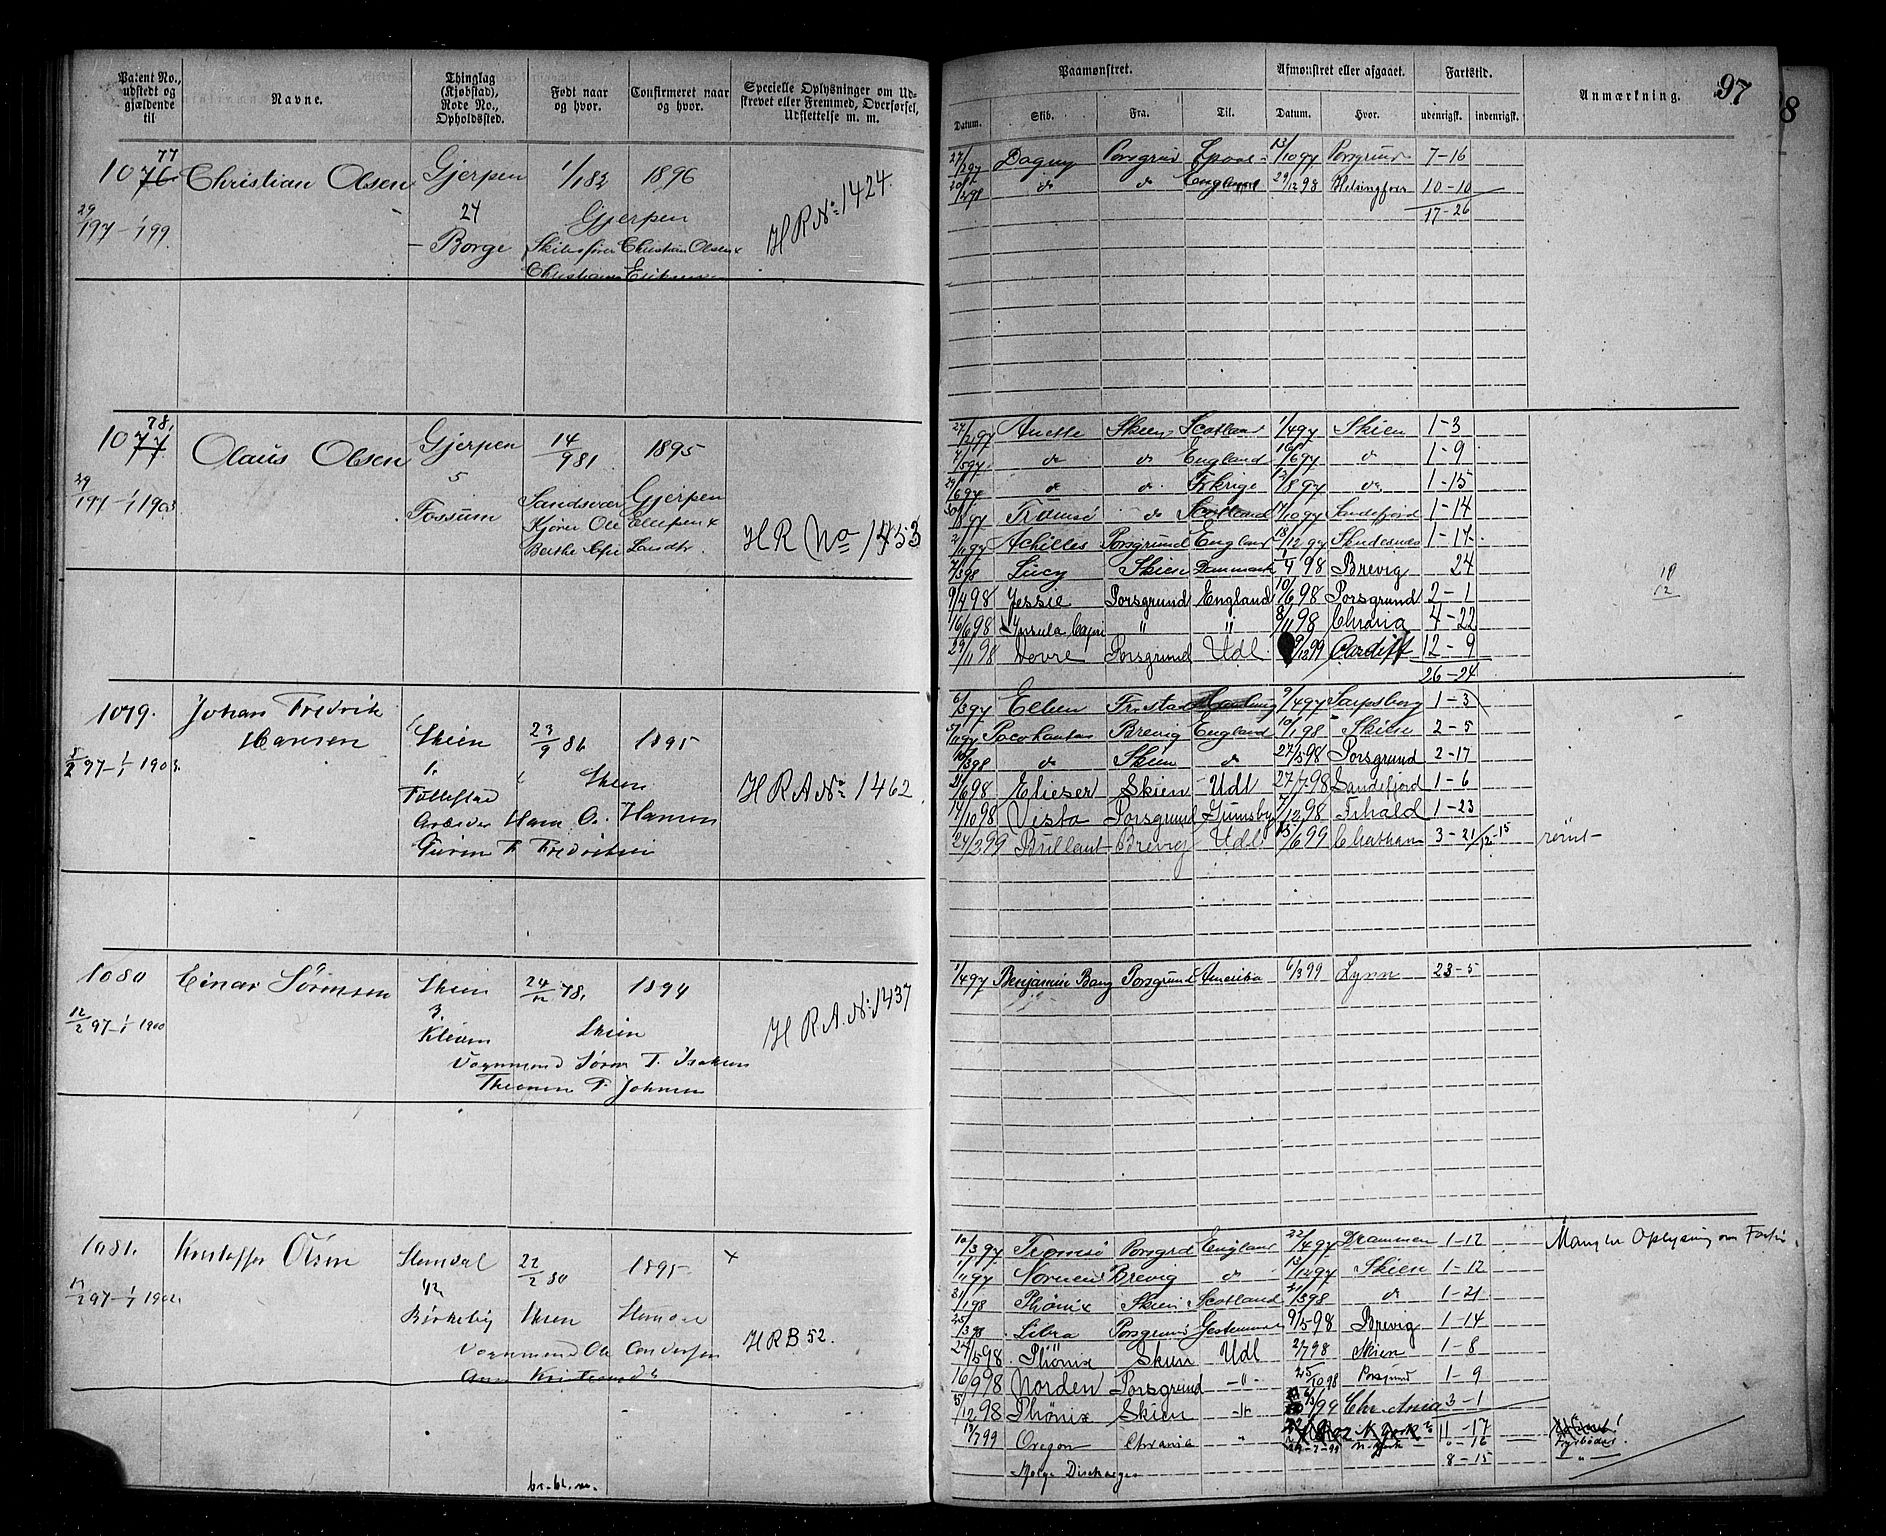 Patent No., udstedt og gjældende til
Navne.
Thinglag (Kjøbstad), Rode No., Opholdssted.
Født naar og hvor.
Confirmeret naar og hvor.
Specielle Oplysninger om Udskrevet eller Fremmed, Overførsel, Udslettelse m. m.
Paamønstret.
Afmønstret eller afgaaet.
Fartstid.
Anmærkning.
97
Datum.
Skib.
Fra.
Til.
Datum.
Hvor.
udenrigsk.
indenrigsk.
1076 77
Christian Olsen
Gjerpen
1/1 82
1896
29/1 97 - 1/1 99
24
Gjerpen
Borge
Christian Olsen
H R No 1424.
27/2 97 Dagny Porsgrund 13/10 97 Porsgrund 7-16
do do England 29/12 98 Helsingfors 10-10
17-26
1077 78.
Olaus Olsen
Gjerpen
14/9 81
1895
5
29/1 97 - 1/1 1903
Sandsvær
Gjerpen
Fossum
H R No 1453
27/2 97 Anette Skien Scotland 1/4 97 Skien 1-3
7/5 97 do do England 16/6 97 do 1-9
29/6 97 do do 13/8 97 do 1-15
Tromsø do Scotland 10 97 Sandefjord 1-14
2/11 97 Achilles Porsgrund England 18/12 97 Skudesnes 1-17
7/3 98 Lucy Skien Danmark 1/4 98 Brevig 24
9/4 98 Jessie Porsgrund England 10/6 98 Porsgrund 2-1
16/6 98 Insula Capri " " 8/11 98 Chrania 4-22
29/11 98 Dovre Porsgrund Udl. 9/12 99 Cardiff 12-9
26-24
1079.
Johan Fredrik
Hansen
Skien
23/9 81
1895
5/2 97 - 1/1 1903.
1.
Skien
Follestad
Arbeider Hans O. Hansen
H R A No 1462
6/3 97 Ellen Fr.stad 9/4 97 Sarpsborg 1-3
3/11 97 Pocohantas Brevig England 10/1 98 Skien 2-5
10/3 98 do Skien do 27/5 98 Porsgrund 2-17
21/6 98 Elieser Skien Udl 27/7 98 Sandefjord 1-6
14/10 98 Vesta Porsgrund Grimsby 7/12 98 Frhald 1-23
24/2 99 Brillant Brevig Udl 15/6 99 Chatham 3-21/12-15 rømt
1080
Einar Sörensen
Skien
24/12 78.
1894
3.
12/2 97 - 1/1 1900
Skien
Kleiven
Vognmand Sören T. Isaksen
H R A. No 1437
1/4 97 Benjamin Bang Porsgrund Amerika 6/3 99 Lynn 23-5
1081.
Kristoffer Olsen
22/2 80
1895
12/2 97 - 1/1 1902.
Birkeby
Skien
Vognmand Ole Andersen
H R B 52.
10/3 97 Tromsø Porsgrd England 22/4 97 Drammen 1-12 Mangler Oplysning om Fartid.
1/11 97 Nornen Brevig do 13/12 97 Skien 1-12
31/1 98 Phönix Skien Scotland 21/3 98 do 1-21
25/3 98 Libra Porsgrund 9/5 98 Brevig 1-14
24/5 98 Phönix Skien Udl 2/7 98 Skien 1-8
16/9 98 Norden Porsgrund -"- 25/10 98 Porsgrund 1-9
5/12 98 Phönix Skien -"- Chr.ania 3-1
17/7 99 Oregon Chrania " N. York 11-17
N. York " -16 Fyrbøder!
8-15 "
Discharges